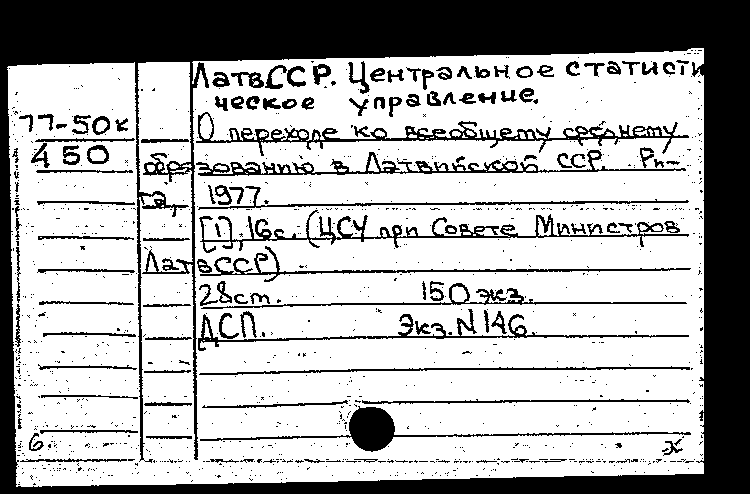 ЛатвССР. Центральное статисти
ческое управление.
77-50к
О переходе ко всеобщему среднему
450
образованию в Латвийской ССР. Ри-
га, 1977.
[1], 16с. (ЦСУ при Совете Министров
ЛатвССР)
28см. 150 экз.
ДСП. Экз. N 146.
6. х